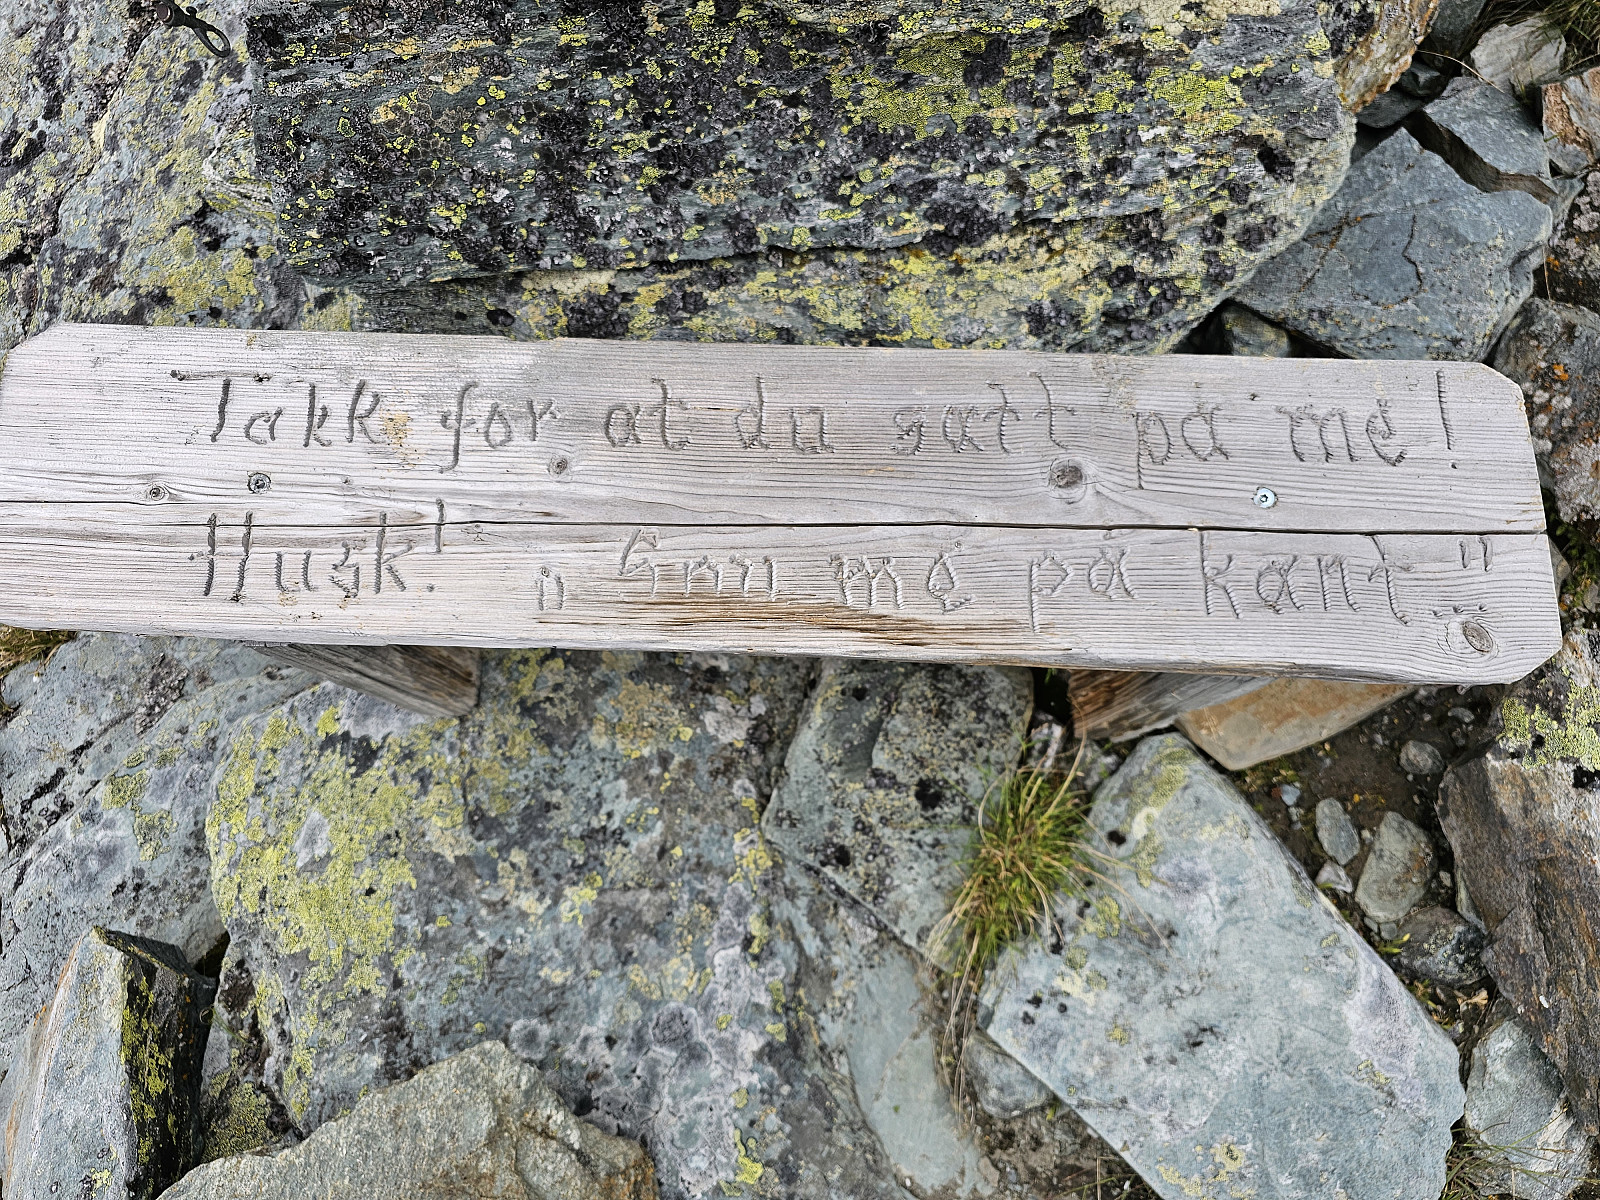 Takk for at du satt på mé!
Husk! „Snu mé på kant"